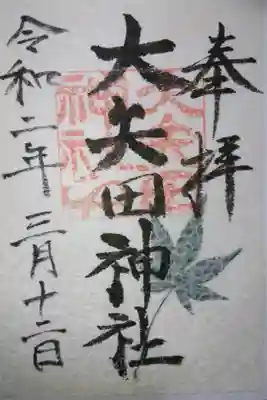 奉拝
大矢田神社
令和二年三月十二日